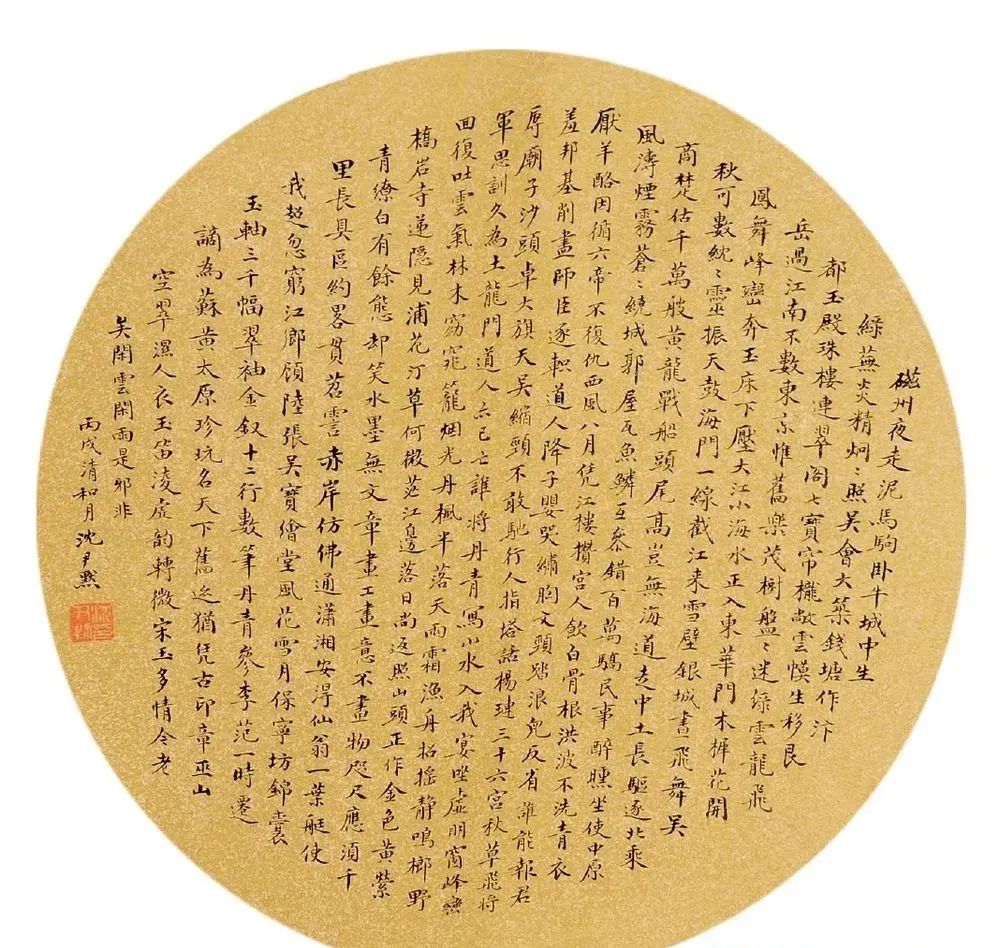 磁州夜走泥馬駒卧牛城中生
綠蕪炎精炯〻照吳會大築錢塘作汴
都玉殿珠樓連翠閣七寶帘櫳敞雲幙生移艮
岳過江南不數東京惟舊樂茂樹盤〻迷綠雲龍飛
鳳舞峰巒奔玉床下壓大江小海水正入東華門木樨花開
秋可數紞〻靈振天鼓海門一線截江来雪壁銀城書飛舞吳
商楚估千萬艘黃龍戰船頭尾高豈無海道走中土長驅逐北乘
風濤煙霧蒼〻繞城郭屋瓦魚鱗互叅錯百萬驕民事醉醺坐使中原
厭羊酪因循六帝不復仇西風八月凭江樓攢宮人飲白骨根洪波不洗青衣
羞邦基削盡師臣逐軹道人降子嬰哭繡胸文頸踏浪兒反省誰能報君
辱廟子沙頭卓大旗天吳縮頸不敢馳行人指塔話楊璉三十六宮秋草飛將
軍思訓久為土龍門道人亦已亡誰將丹青寫山水入我宴坐虛明窗峰巒
回復吐雲氣林木窈窕籠烟光丹楓半落天雨霜漁舟招搖靜鳴榔野
橋岩寺遞隱見浦花汀草何微茫江邊落日尚返照山頭正作金色黃縈
青繚白有餘態却笑水墨無文章畫工畫意不畫物咫尺應須千
里長具區約畧貫苕霅赤岸仿佛通瀟湘安得仙翁一葉艇使
我超忽窮江鄉顧陸張吳寶繪堂風花雪月保寧坊錦囊
玉軸三千幅翠袖金釵十二行數筆丹青參李范一時遷
謫為蘇黃太原珍玩名天下舊迄猶凭古印章巫山
空翠濕人衣玉笛淩虛韵轉微宋玉多情今老
矣閑雲閑雨是邪非
丙戌清和月沈尹默